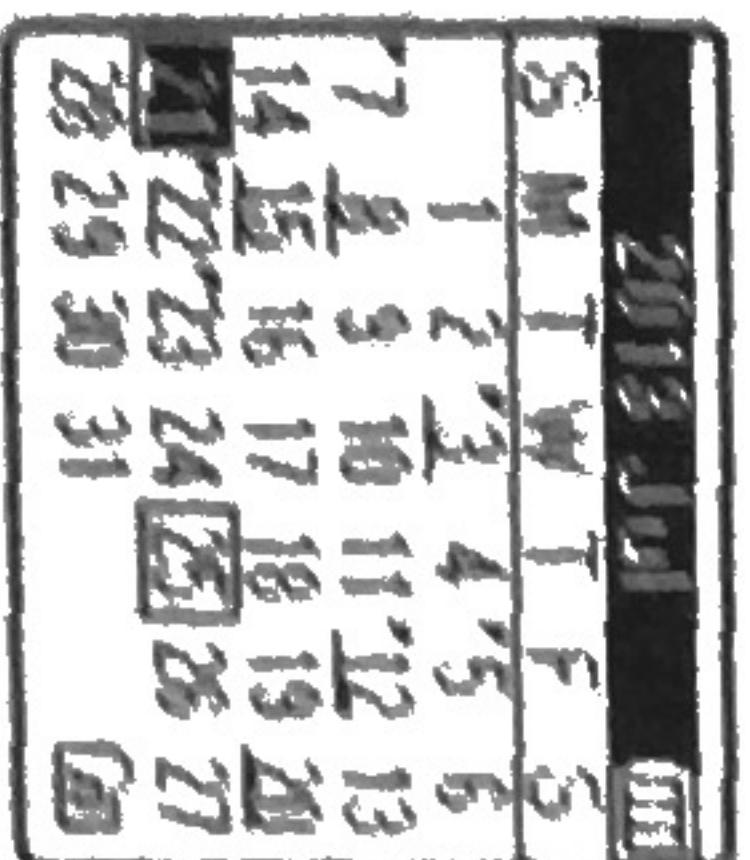 2013 Jul
S M T W T F S
1 2 3 4 5 6
7 8 9 10 11 12 13
14 15 16 17 18 19 20
21 22 23 24 25 26 27
28 29 30 31